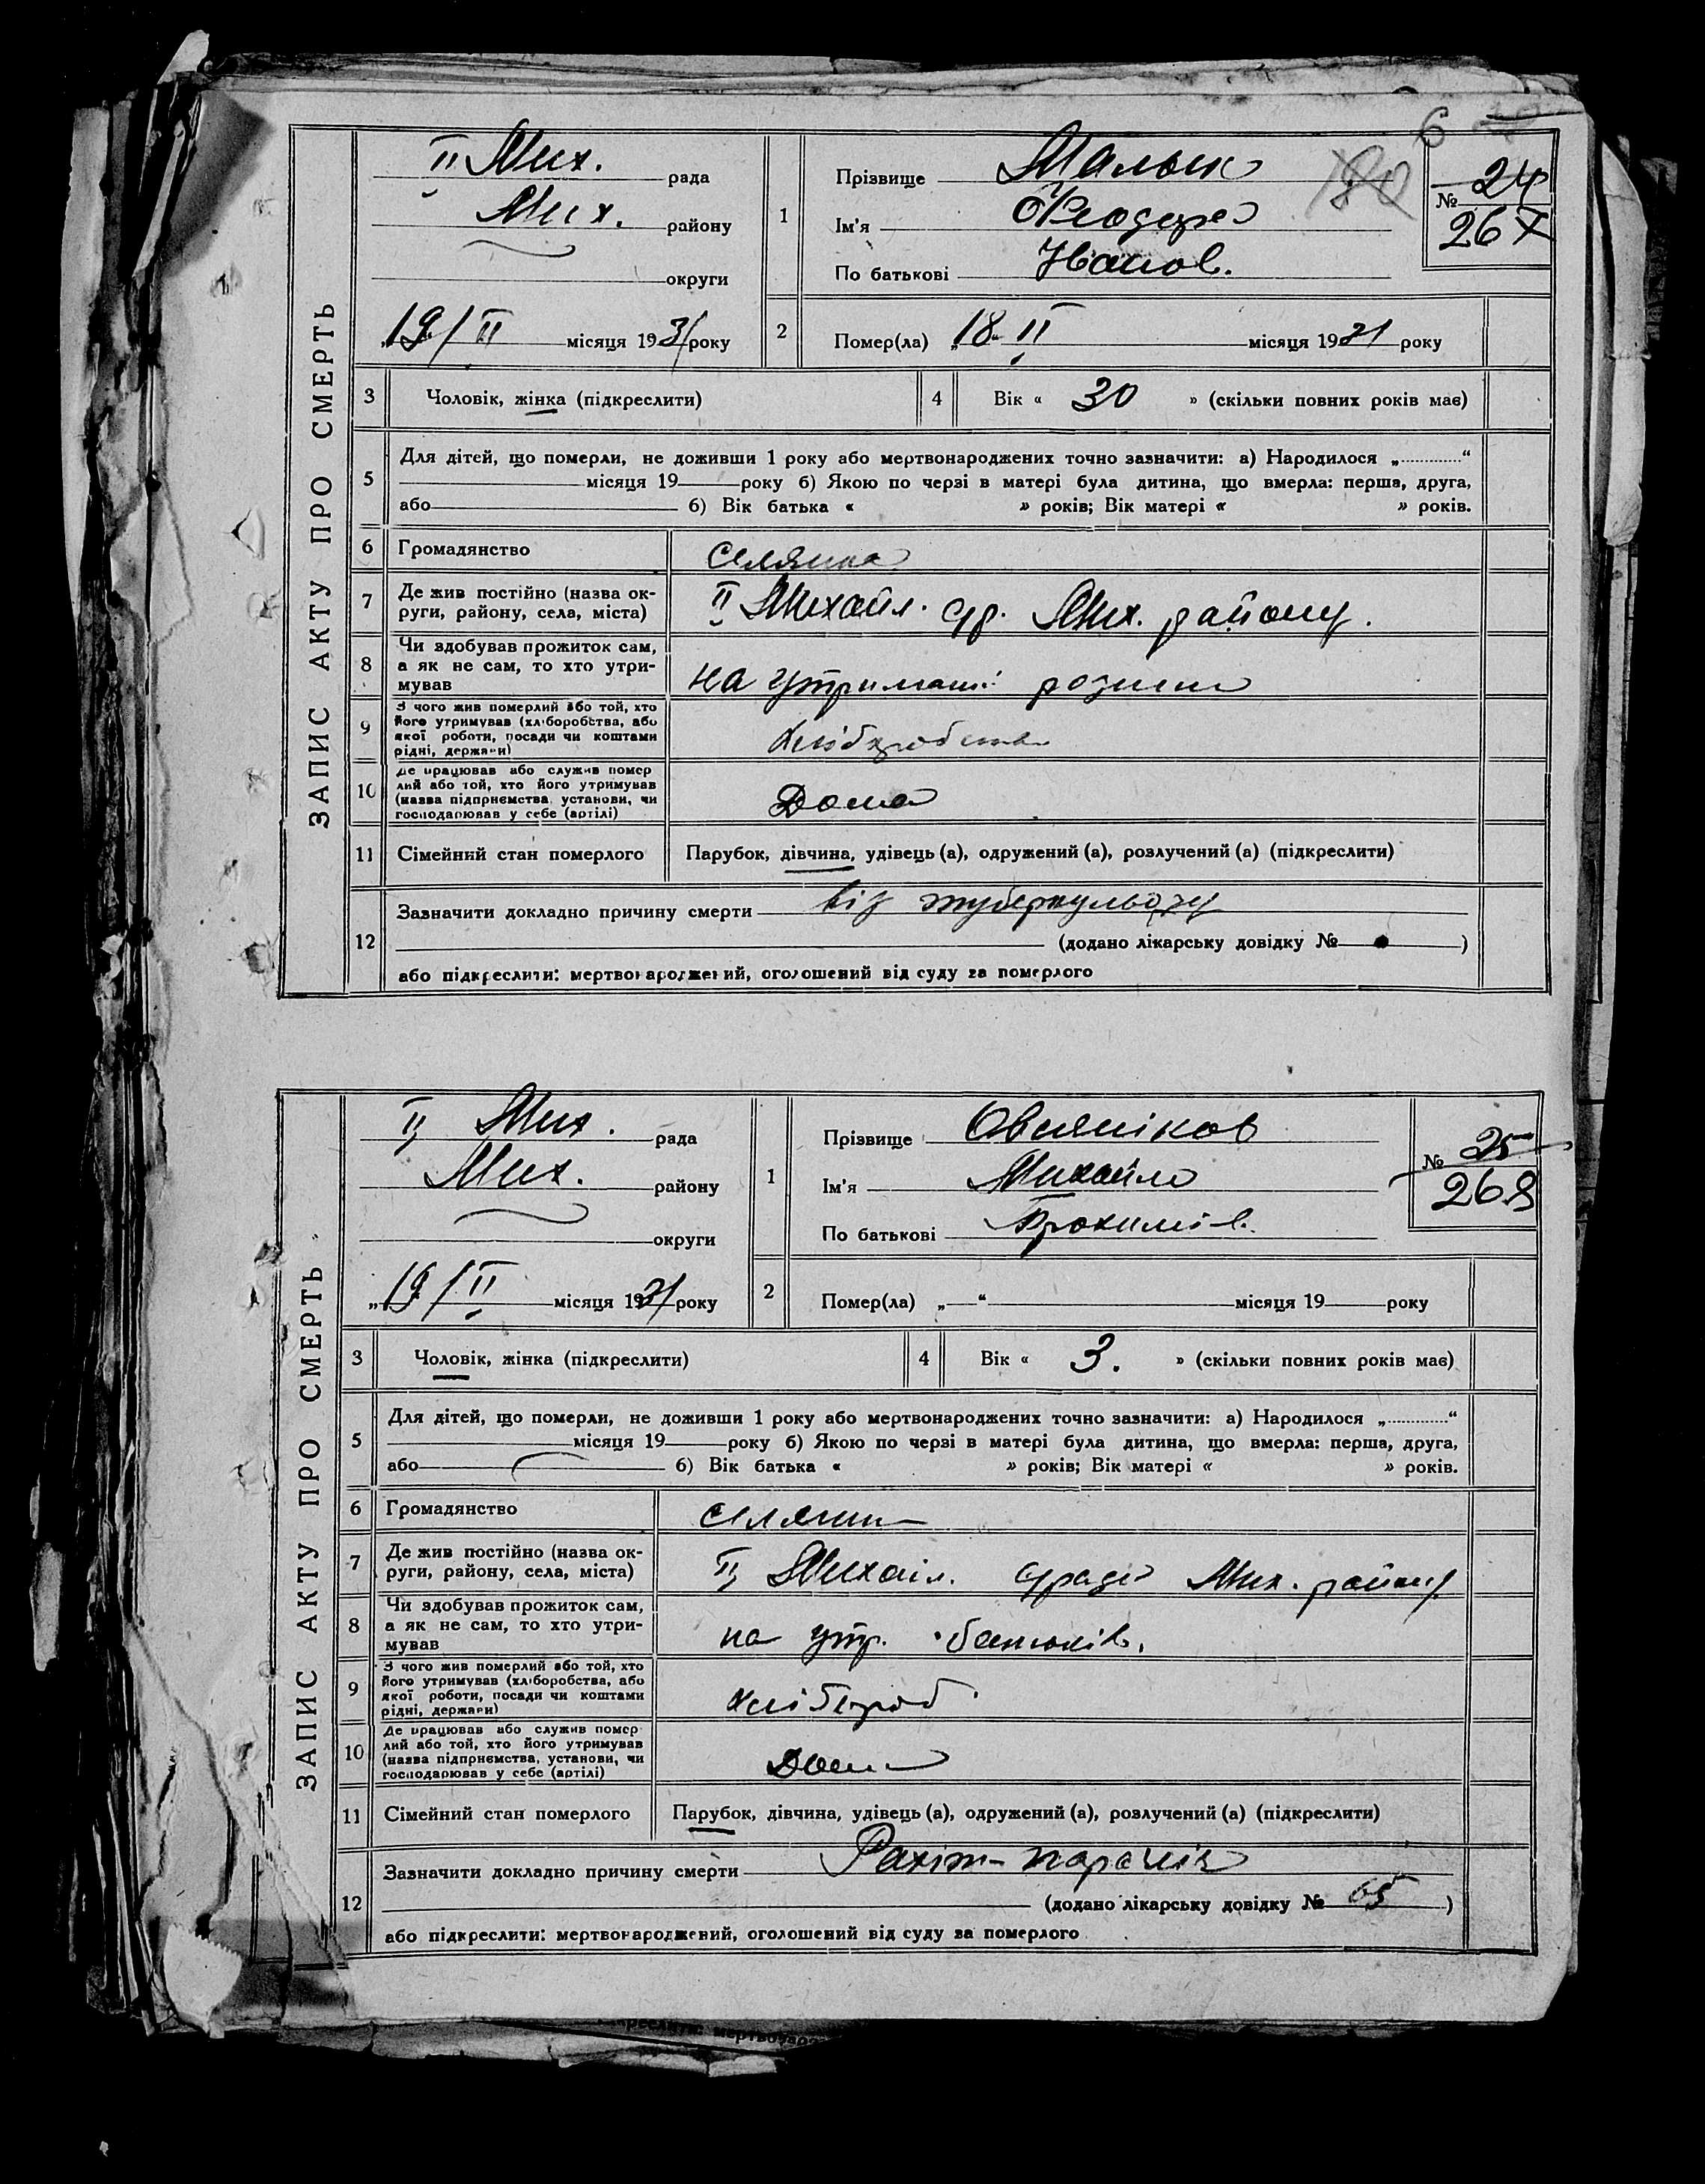 6
ЗАПИС АКТУ ПРО СМЕРТЬ
II Мих. рада
Мих. району
округи
„19/II місяця 1931 року
1
Прізвище Малык
Ім'я Феодора
По батькові Иванов.
180
№ 24
267
2 Помер(ла) „18" II місяця 1931 року
3 Чоловік, жінка (підкреслити)
4 Вік « 30 » (скільки повних років має)
5 Для дітей, що померли, не доживши 1 року або мертвонароджених точно зазначити: а) Народилося „ “
місяця 19 року б) Якою по черзі в матері була дитина, що вмерла: перша, друга,
або б) Вік батька « » років; Вік матері « » років.
6 Громадянство селянка
7 Де жив постійно (назва ок-
руги, району, села, міста)
II Михайл. ср. Мих. району.
8 Чи здобував прожиток сам,
а як не сам, то хто утри-
мував
на утриманні родини
9 З чого жив померлий або той, хто
його утримував (хліборобства, або
якої роботи, посади чи коштами
рідні, держави)
хліборобства
10 Де працював або служив помер
лий або той, хто його утримував
(назва підприємства, установи, чи
господарював у себе (артілі)
Дома
11 Сімейний стан померлого Парубок, дівчина, удівець (а), одружений (а), розлучений (а) (підкреслити)
12 Зазначити докладно причину смерти від туберкульозу
(додано лікарську довідку № )
або підкреслити: мертвонароджений, оголошений від суду за померлого
ЗАПИС АКТУ ПРО СМЕРТЬ
II Мих. рада
Мих. району
округи
„19/II місяця 1931 року
1
Прізвище Овсяніков
Ім'я Михайло
По батькові
№ 25
268
2 Помер(ла) „ “ місяця 19 року
3 Чоловік, жінка (підкреслити)
4 Вік « 3. » (скільки повних років має)
5 Для дітей, що померли, не доживши 1 року або мертвонароджених точно зазначити: а) Народилося „ “
місяця 19 року б) Якою по черзі в матері була дитина, що вмерла: перша, друга,
або б) Вік батька « » років; Вік матері « » років.
6 Громадянство селянин
7 Де жив постійно (назва ок-
руги, району, села, міста)
II Михаіл. сради Мих. району
8 Чи здобував прожиток сам,
а як не сам, то хто утри-
мував
на утр. батьків.
9 З чого жив померлий або той, хто
його утримував (хліборобства, або
якої роботи, посади чи коштами
рідні, держави)
хлібороб.
10 Де працював або служив помер
лий або той, хто його утримував
(назва підприємства, установи, чи
господарював у себе (артілі)
Дома
11 Сімейний стан померлого Парубок, дівчина, удівець (а), одружений (а), розлучений (а) (підкреслити)
12 Зазначити докладно причину смерти Рахіт-параліч
(додано лікарську довідку № 65 )
або підкреслити: мертвонароджений, оголошений від суду за померлого